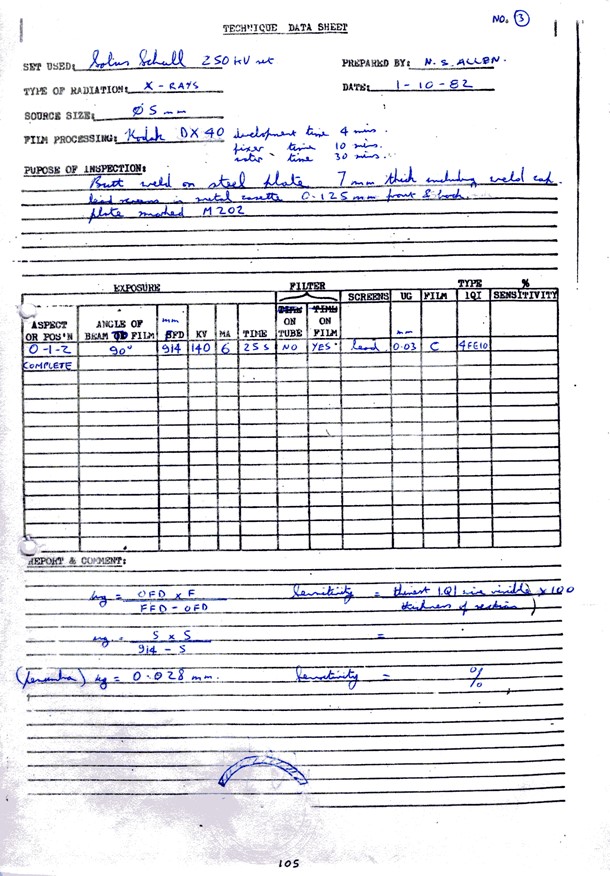 NO. 3
TECHNIQUE DATA SHEET
SET USED: Solus Schall 250 KV set PREPARED BY: N.S. ALLEN.
TYPE OF RADIATION: X-RAYS DATE: 1-10-82
SOURCE SIZE: Ø 5 mm
FILM PROCESSING: Kodak DX 40 development time 4 mins.
fixer time 10 mins.
water time 30 mins.
PUPOSE OF INSPECTION:
Butt weld on steel plate 7 mm thick including weld cap.
lead screens in metal casette 0.125 mm front & back.
plate marked M202
EXPOSURE FILTER TYPE %
SCREENS UG FILM IQI SENSITIVITY
ASPECT OR POS'N ANGLE OF BEAM TO FILM mm FFD KV MA TIME ON TUBE ON FILM mm
0-1-2 90° 914 140 6 25s NO YES. lead 0.03 C 4FE10
COMPLETE
REPORT & COMMENT:
ug = OFD x F / FFD - OFD Sensitivity = thinnest IQI wire visible x 100 / thickness of section
ug = 5 x 5 / 914 - 5 =
(penumbra) ug = 0.028 mm. Sensitivity = %
105